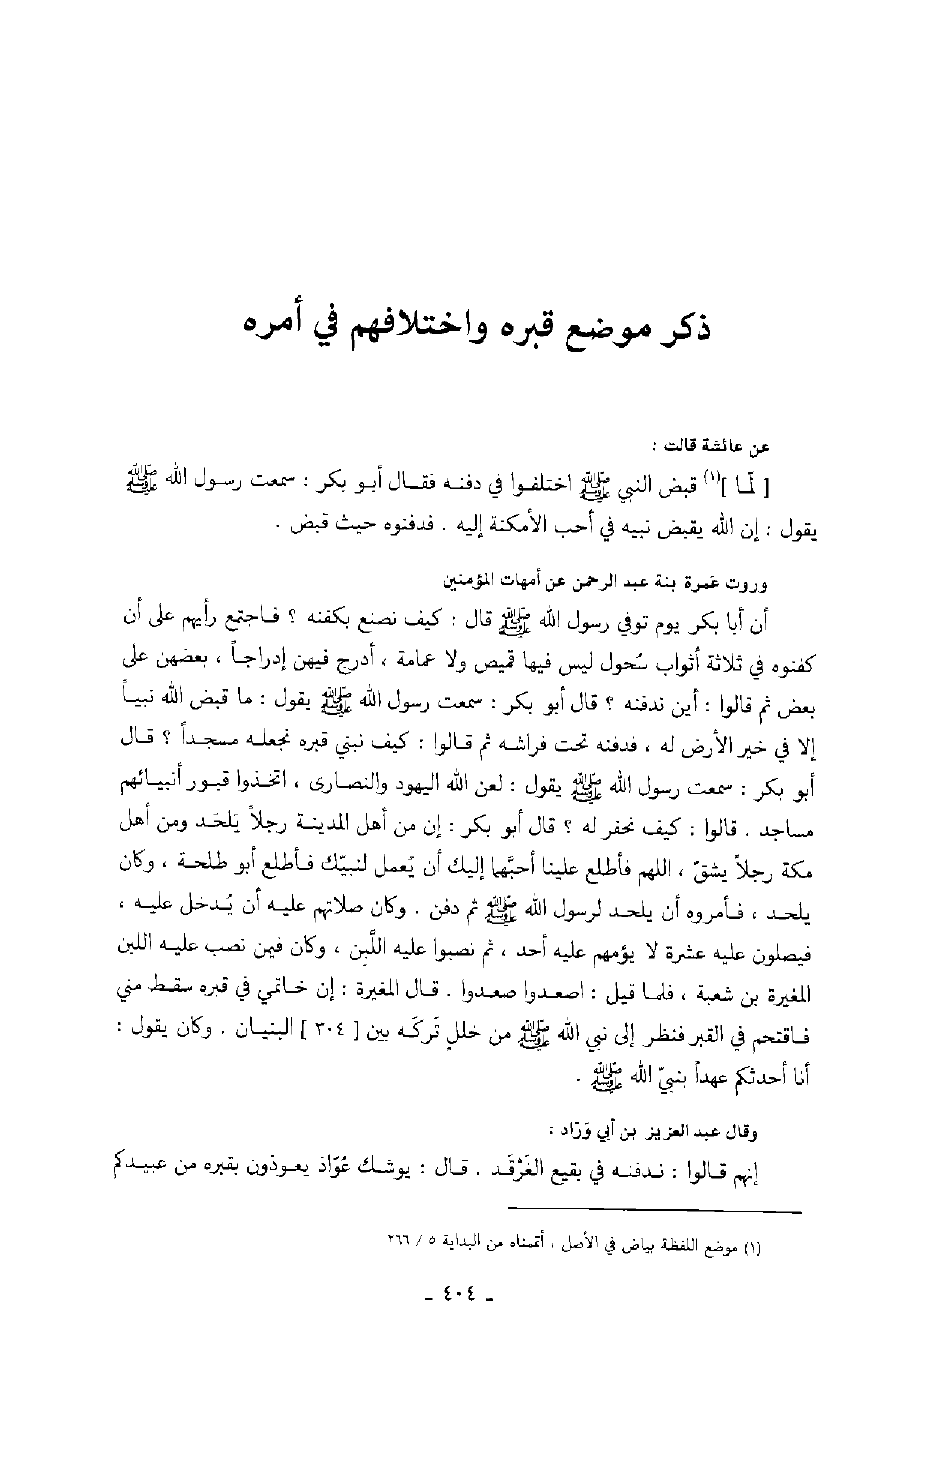 ذكر موضع قبره واختلافهم في أمره
عن عائشة قالت :
[ لَمّا ](١) قبض النبي ﷺ اختلفوا في دفنه فقال أبو بكر : سمعت رسول الله ﷺ
يقول : إن الله يقبض نبيه في أحب الأمكنة إليه . فدفنوه حيث قبض .
وروت عَمرة بنة عبد الرحمن عن أمهات المؤمنين
أن أبا بكر يوم توفي رسول الله ﷺ قال : كيف نصنع بكفنه ؟ فاجتمع رأيهم على أن
كفنوه في ثلاثة أثواب سُحول ليس فيها قميص ولا عمامة ، أدرج فيهن إدراجاً ، بعضهن على
بعض ثم قالوا : أين ندفنه ؟ قال أبو بكر : سمعت رسول الله ﷺ يقول : ما قبض الله نبياً
إلا في خير الأرض له ، فدفنه تحت فراشه ثم قالوا : كيف نبني قبره نجعله مسجداً ؟ قال
أبو بكر : سمعت رسول الله ﷺ يقول : لعن الله اليهود والنصارى ، اتخذوا قبور أنبيائهم
مساجد . قالوا : كيف نحفر له ؟ قال أبو بكر : إن من أهل المدينة رجلاً يَلحَد ومن أهل
مكة رجلاً يشقّ ، اللهم فأطلع علينا أحبَّها إليك أن يُعمل لنبيّك فأطلع أبو طلحة ، وكان
يلحد ، فأمروه أن يلحد لرسول الله ﷺ ثم دفن . وكان صلاتهم عليه أن يُدخل عليه ،
فيصلون عليه عشرة لا يؤمهم عليه أحد ، ثم نصبوا عليه اللَّبِن ، وكان فيمن نصب عليه اللبن
المغيرة بن شعبة ، فلما قيل : اصعدوا صعدوا . قال المغيرة : إن خاتمي في قبره سقط مني
فاقتحم في القبر فنظر إلى نبي الله ﷺ من خللٍ تَركَه بين [ ٣٠٤ ] البنيان . وكان يقول :
أنا أحدثكم عهداً بنبيّ الله ﷺ .
وقال عبد العزيز بن أبي وَرَّاد :
إنهم قالوا : ندفنه في بقيع الغَرْقَد . قال : يوشك عُوّاذ يعوذون بقبره من عبيدكم
(١) موضع اللفظة بياض في الأصل ، أتممناه من البداية ٥ / ٢٦٦
- ٤٠٤ -